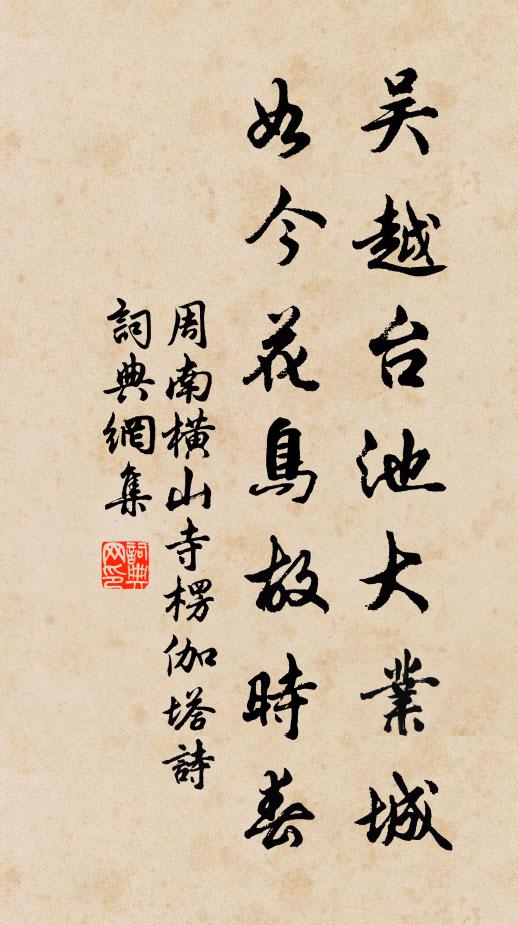 吴越台池大業城
如今花鳥故時春
周南橫山寺楞伽塔詩
詞典網集
詞典网印